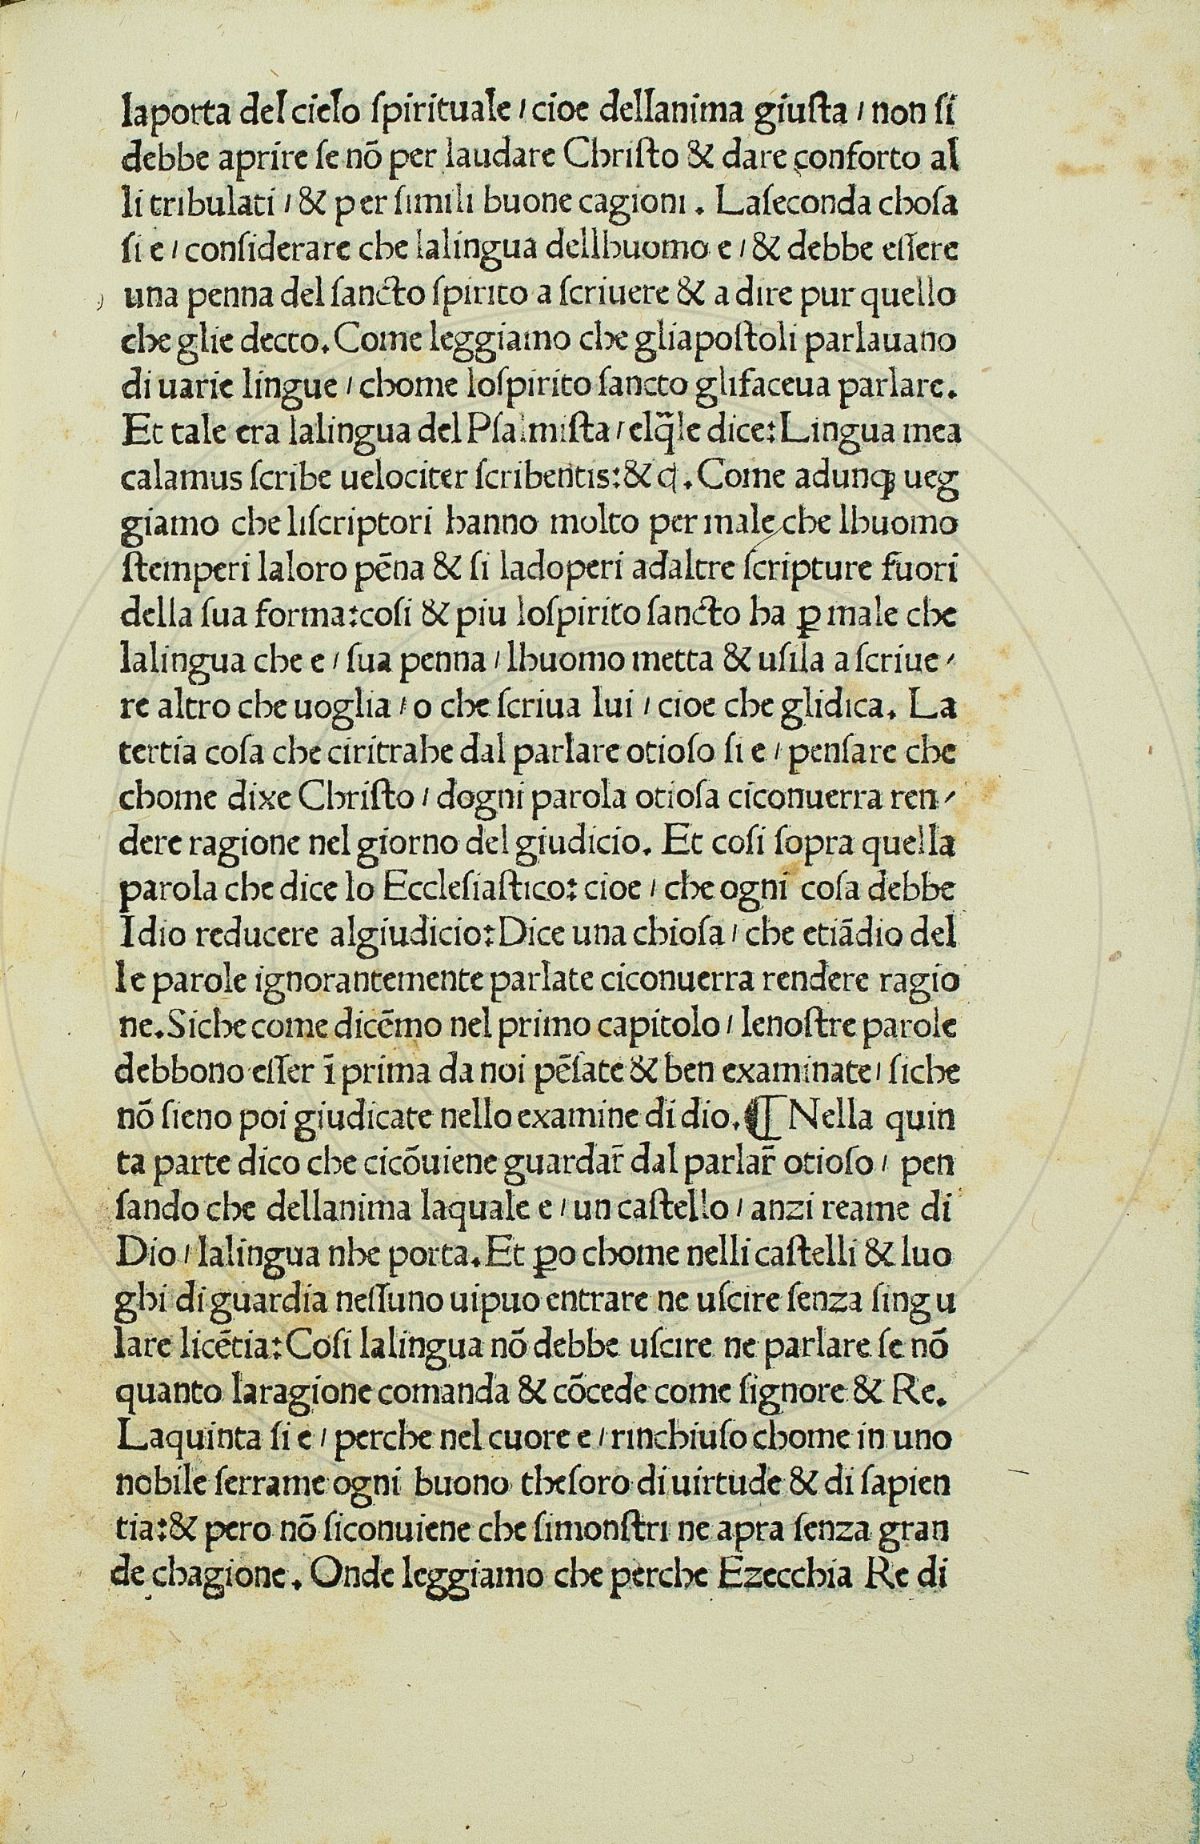 laporta del cielo ſpirituale / cioe dellanima giuſta / non ſi
debbe aprire ſe nō per laudare Chriſto & dare conforto al
li tribulati / & per ſimili buone cagioni . Laſeconda choſa
ſi e / conſiderare che lalingua dellhuomo e / & debbe eſſere
una penna del ſancto ſpirito a ſcriuere & a dire pur quello
che glie decto. Come leggiamo che gliapoſtoli parlauano
di uarie lingue / chome loſpirito ſancto glifaceua parlare.
Et tale era lalingua del Pſalmiſta / elq̄le dice: Lingua mea
calamus ſcribe uelociter ſcribentis: & cͣ. Come adunqꝫ ueg
giamo che liſcriptori hanno molto per male che lhuomo
ſtemperi laloro pēna & ſi ladoperi adaltre ſcripture fuori
della ſua forma: coſi & piu loſpirito ſancto ha ꝑ male che
lalingua che e / ſua penna / lhuomo metta & uſila a ſcriue⸗
re altro che uoglia / o che ſcriua lui / cioe che glidica. La
tertia coſa che ciritrahe dal parlare otioſo ſi e / penſare che
chome dixe Chriſto / dogni parola otioſa ciconuerra ren⸗
dere ragione nel giorno del giudicio. Et coſi ſopra quella
parola che dice lo Eccleſiaſtico: cioe / che ogni coſa debbe
Idio reducere algiudicio: Dice una chioſa / che etiādio del
le parole ignorantemente parlate ciconuerra rendere ragio
ne. Siche come dicēmo nel primo capitolo / lenoſtre parole
debbono eſſer ī prima da noi pēſate & ben examinate / ſiche
nō ſieno poi giudicate nello examine di dio. ¶ Nella quin
ta parte dico che cicōuiene guardar̄ dal parlar̄ otioſo / pen
ſando che dellanima laquale e / un caſtello / anzi reame di
Dio / lalingua nhe porta. Et ꝑo chome nelli caſtelli & luo
ghi di guardia neſſuno uipuo entrare ne uſcire ſenza ſingu
lare licētia: Coſi lalingua nō debbe uſcire ne parlare ſe nō
quanto laragione comanda & cōcede come ſignore & Re.
Laquinta ſi e / perche nel cuore e / rinchiuſo chome in uno
nobile ſerrame ogni buono theſoro di uirtude & di ſapien
tia: & pero nō ſiconuiene che ſimonſtri ne apra ſenza gran
de chagione. Onde leggiamo che perche Ezecchia Re di